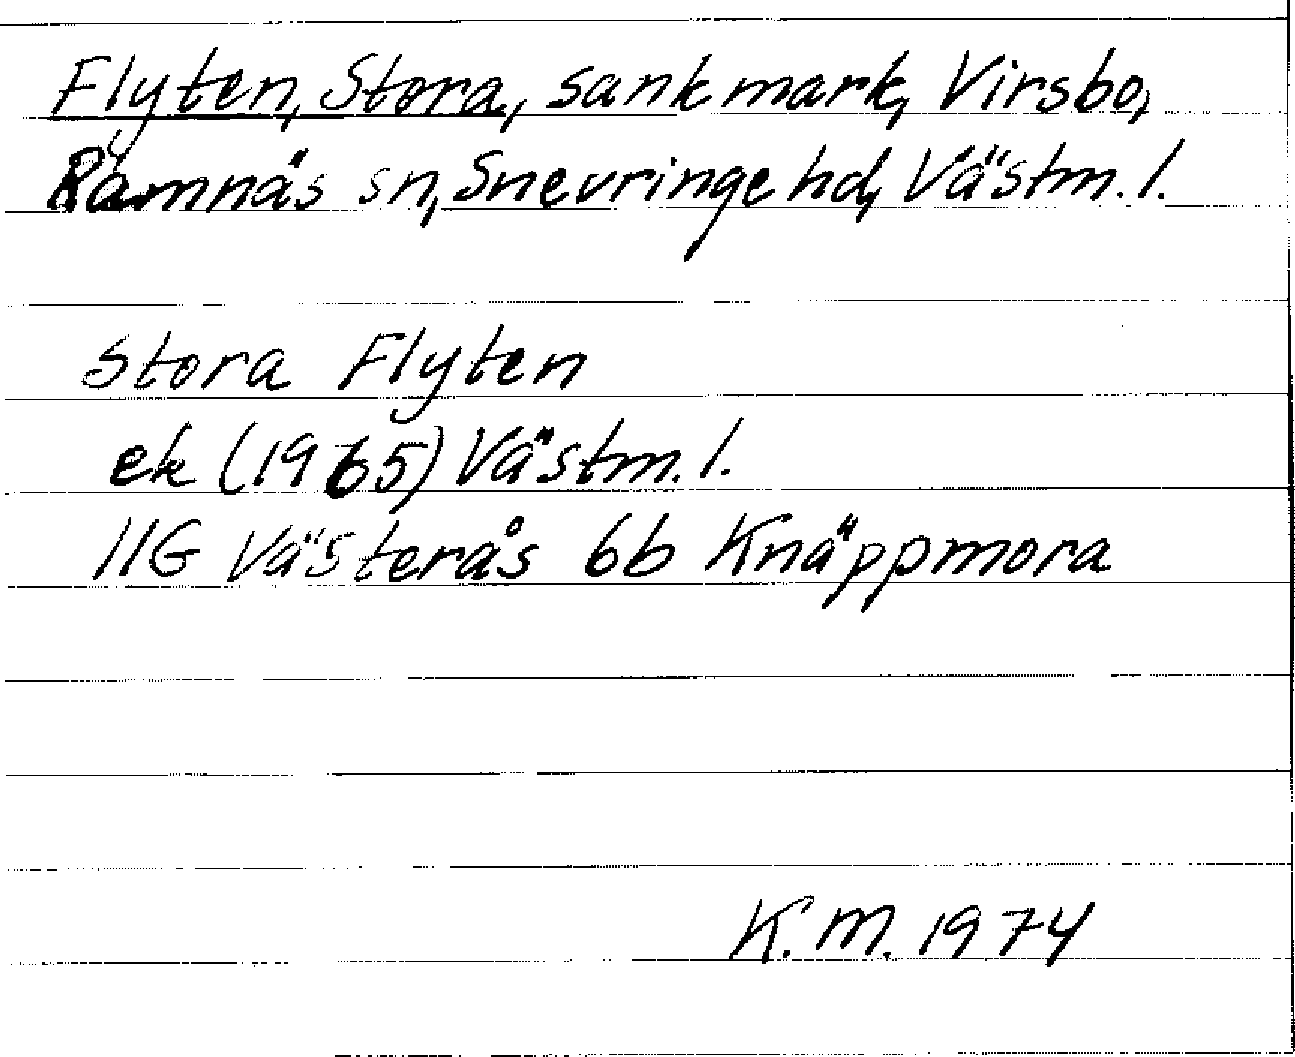 Flyten, Stora, sankmark, Virsbo,
Ramnäs sn, Snevringe hd, Västm. l.
Stora Flyten
ek (1965) Västm. l.
11G Västerås 6b Knäppmora
K. M. 1974